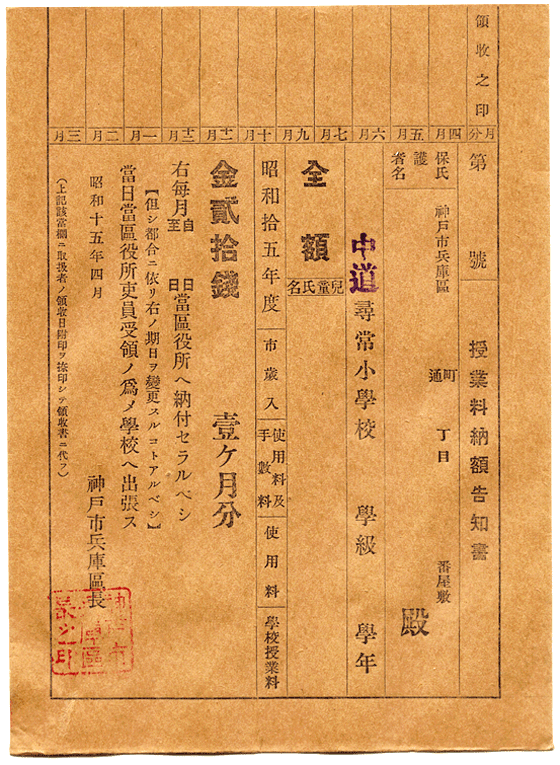 領收之印
月分 四月 五月 六月 七月 九月 十月 十一月 十二月 一月 二月 三月
第 號 授業料納額告知書
保護者氏名 神戸市兵庫區 町通 丁目 番屋敷
殿
中道尋常小學校 學級 學年
全額 兒童氏名
昭和拾五年度 市歲入 使用料及手數料 使用料 學校授業料
金貳拾錢 壹ケ月分
右每月自 日至 日當區役所ヘ納付セラルベシ
【但シ都合ニ依リ右ノ期日ヲ變更スルコトアルベシ】
當日當區役所吏員受領ノ爲メ學校ヘ出張ス
昭和十五年四月
神戸市兵庫區長
(上記該當欄ニ取扱者ノ領收日附印ヲ捺印シテ領收書ニ代フ)
神戸市兵庫區長之印